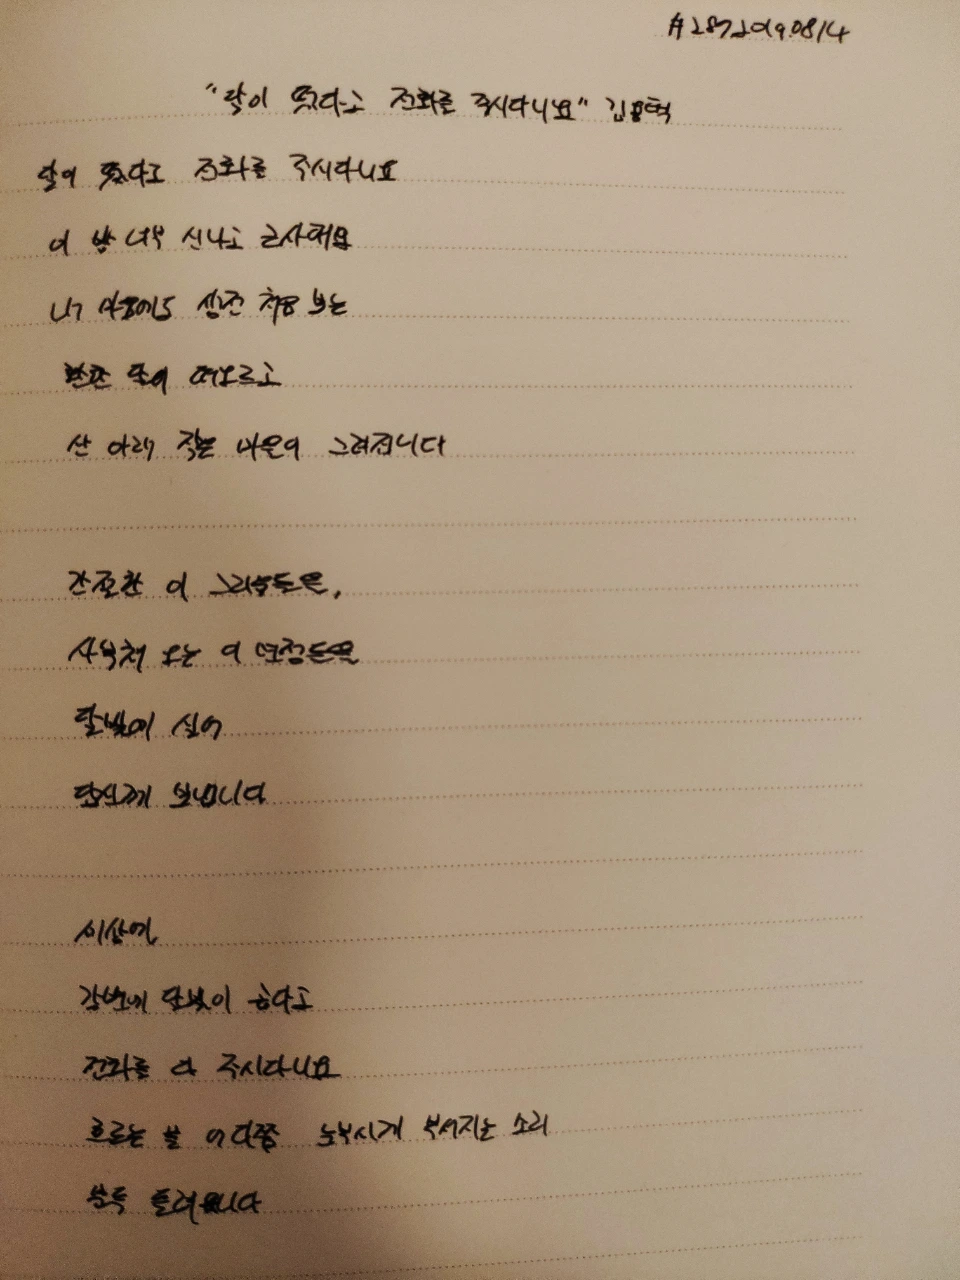 #287 20190814
"달이 떴다고 전화를 주시다니요" 김용택
달이 떴다고 전화를 주시다니요
이 밤 너무 신나고 근사해요
내 마음에도 생전 처음 보는
환한 달이 떠오르고
산 아래 작은 마을이 그려집니다
간절한 이 그리움들을,
사무쳐 오는 이 연정들을
달빛에 실어
당신께 보냅니다
세상에,
강변에 달빛이 곱다고
전화를 다 주시다니요
흐르는 물 어디쯤 눈부시게 부서지는 소리
문득 들려옵니다